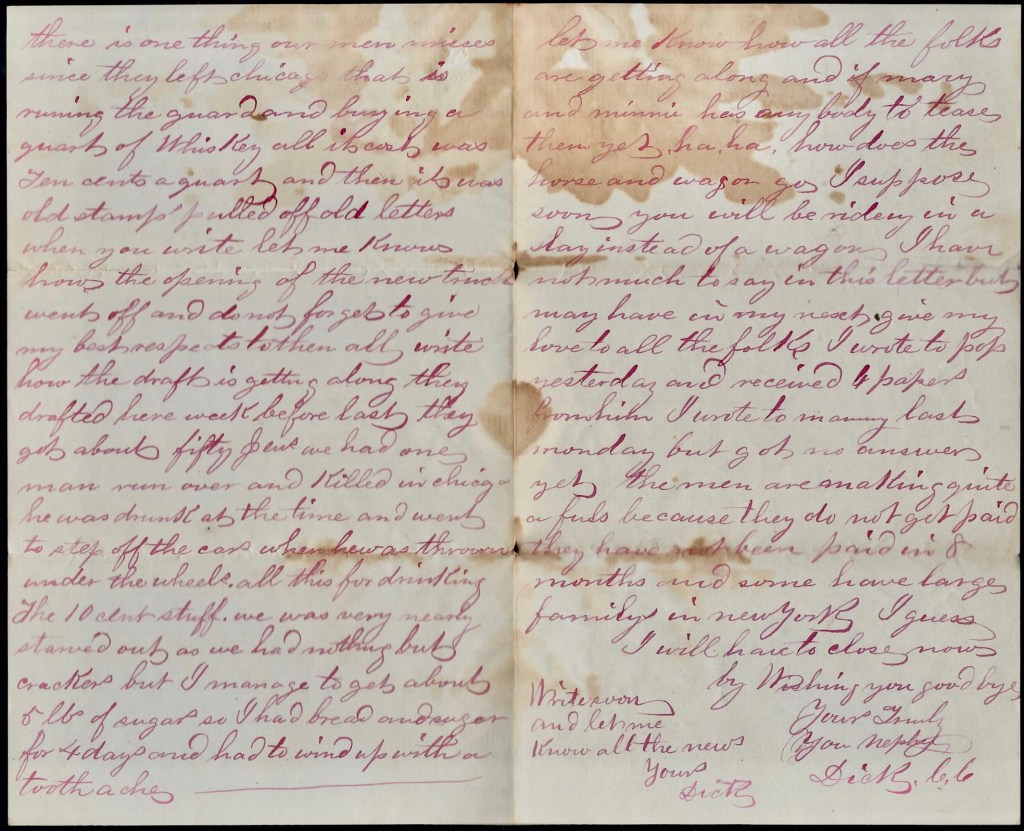 there is one thing our men misses
since they left chicago that is
runing the guard and buying a
quart of Whiskey all it cost was
Ten cents a quart and then it was
old stamps pulled off old letters
when you write let me Know
how the opening of the new truck
went off and do not forget to give
my best respects to then all write
how the draft is getting along they
drafted here week before last they
got about fifty Jews we had one
man run over and Killed in chicago
he was drunk at the time and went
to step off the cars when he was thrown
under the wheels. all this for drinking
The 10 cent stuff. we was very nearly
starved out as we had nothing but
crackers but I manage to get about
5 lbs of sugar so I had bread and sugar
for 4 days and had to wind up with a
tooth ache
let me Know how all the folks
are getting along and if mary
and minnie has anybody to tease
them yet. ha. ha. how does the
horse and wagon go I suppose
soon you will be riden in a
slay instead of a wagon I have
not much to say in this letter but
may have in my next give my
love to all the folks I wrote to pop
yesterday and received 4 papers
from him I wrote to mammy last
monday but got no answer
yet the men are making quite
a fuss because they do not get paid
they have not been paid in 8
months and some have large
familys in new York I guess
I will have to close now
by Wishing you good bye
Yours Truly
You nephew
Dick. C. C
Write soon
and let me
Know all the news
Yours
Dick